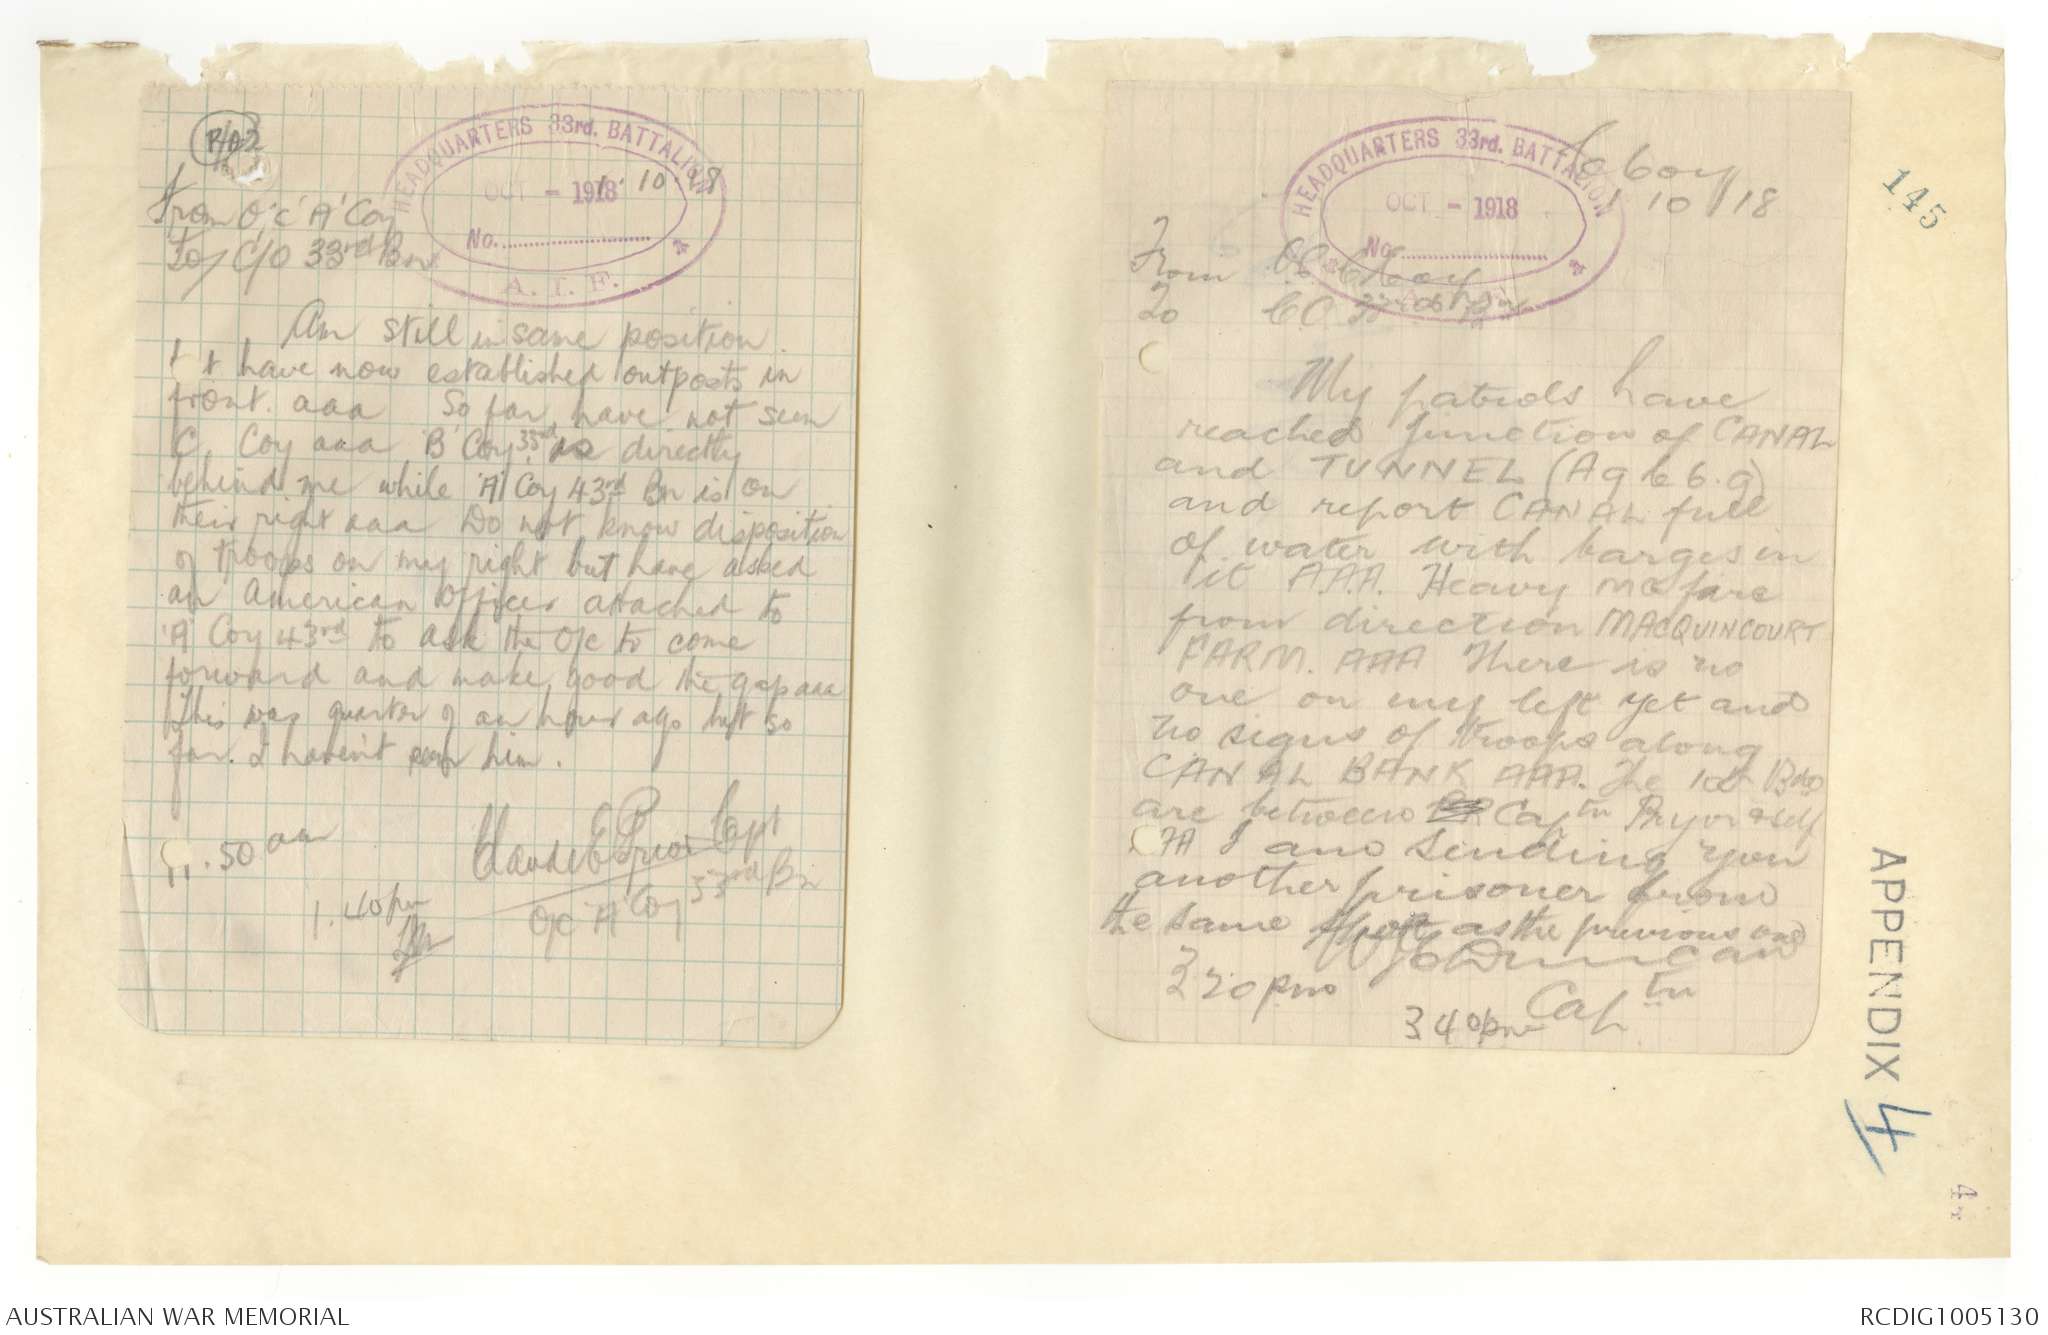 P/A2
HEADQUARTERS 33rd. BATTALION
OCT - 1918
No.
A. I. F.
1. 10. 18
From O'C 'A' Coy
To/ C/O 33rd Bn
Am still in same position.
& have now established outposts in
front. aaa So far have not seen
C. Coy aaa 'B' Coy 33rd is directly
behind me while 'A' Coy 43rd Bn is on
their right aaa Do not know disposition
of troops on my right but have asked
an American Officer attached to
'A' Coy 43rd to ask the O/c to come
forward and make good the gap aaa
This was quarter of an hour ago but so
far I haven't seen him.
11.50 am
Claude E Prior Capt
O/C 'A' Coy 33rd Bn
1.40 pm
HEADQUARTERS 33rd. BATTALION
OCT - 1918
No.
C Coy
1 10/18
From OC C Coy
To CO 33rd Bn
My patrols have
reached junction of CANAL
and TUNNEL (A96 b.9)
and report CANAL full
of water with barges in
it AAA. Heavy MG fire
from direction MACQUINCOURT
FARM. AAA There is no
one on my left yet and
no signs of troops along
CANAL BANK AAA. The Bdo
are between Captn Pryor & self
I am sending you
another prisoner from
the same spot as the previous one
W J C Duncan
Captn
3 20 pm
3 40 pm
145
APPENDIX 4
4
AUSTRALIAN WAR MEMORIAL
RCDIG1005130